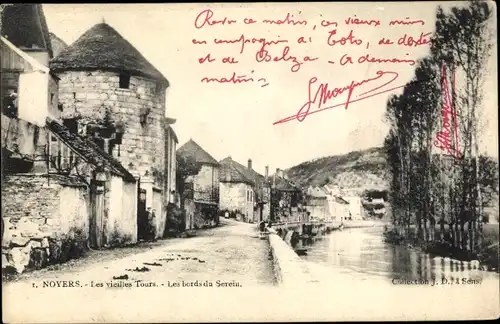 Revu ce matin, ces vieux murs
en compagnie de Toto, de
et de - A demain
matin.
1. NOYERS. - Les vieilles Tours. - Les bords du Serein.
Collection J. D. à Sens